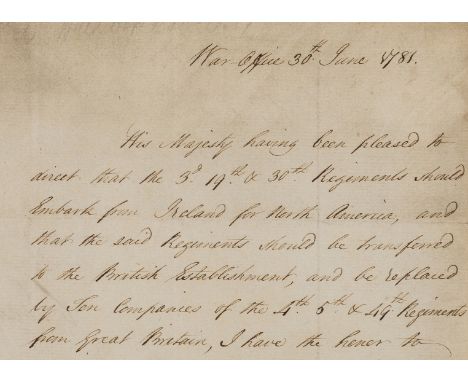 War-Office 30th June 1781.
His Majesty having been pleased to
direct that the 3d. 19th. & 30th Regiments should
Embark from Ireland for North America, and
that the said Regiments should be transferred
to the British Establishment, and be replaced
by Ten Companies of the 4th. 5th & 49th Regiments
from Great Britain, I have the honor to